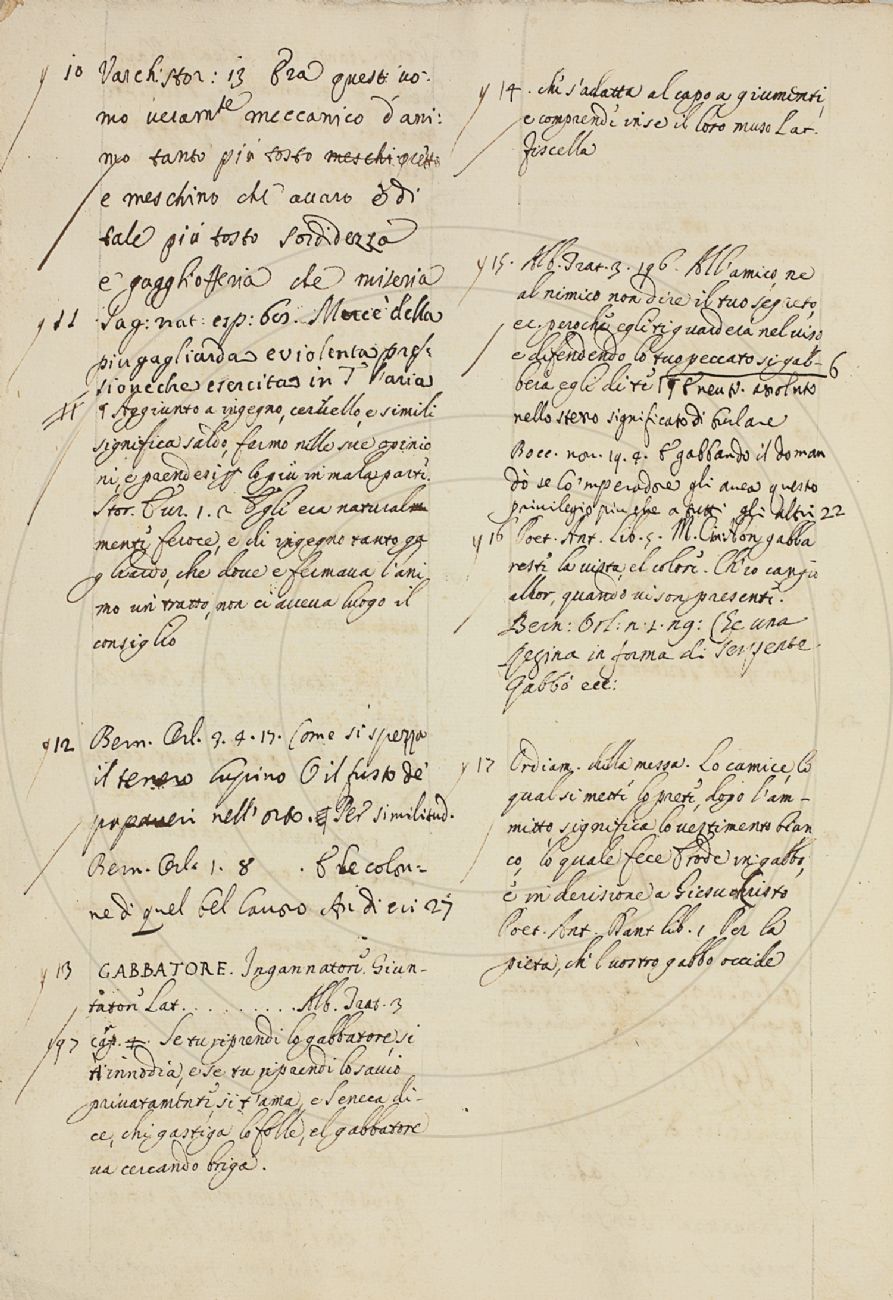 10 Varch. Stor: 13 Era questi uo-
mo ueram.te meccanico d'ani:
mo tanto più tosto
e meschino che auaro e di
tale più tosto sordidezza
e gagliofferia che miseria
11 Sag: nat: esp: 60. Mercè della
più gagliarda e violenta pres-
sione che esercita in l'aria
¶ Aggiunto a ingegno, ceruello, e simili
significa saldo, fermo nelle sue opinio
ni, e prendesi le più in mala parte.
Stor. Eur. 1. 2 Egli era naturalm
mente feroce, e di ingegno tanto ga
gliardo, che doue e fermaua l'ani
mo un tratto, non ci aueua luogo il
consiglio
12 Bern. Orl. 2. 4. 17. Come si spezza
il tenero lupino O il fusto de
papaueri nell'orto. Per similitud.
Bern. Orl. 1. 8 . E le colon-
ne di quel bel lauoro 27
13 GABBATORE. Ingannatore. Giun-
tatore Lat. . . . . . . . . . Alb. Trat. 3
97 cap. Se tu riprendi lo gabbatore, si
t'innodia, e se tu riprendi lo sauio
priuatamente, si t'ama, e Seneca di-
ce, chi gastiga lo folle, e'l gabbatore
ua cercando briga.
14. che s'adatta al capo a giumenti,
e comprende in se il loro muso Lat.
fiscella
15. Alb. Trat. 3. 196. All'amico, ne
al nimico non dire il tuo segreto,
ec. peroche egli ti guarderà nel uiso
e difendendo lo tuo peccato si gab- 6
berà egli di te ¶ E neut. assoluto
nello stesso significato di burlare
Bocc. nou. 19. 4. E gabbando il doman
dò se lo 'mperadore gli auea questo
privilegio più che a tutti gli altri 22
16 Poet. Ant. Lib. 5. M. Cin. Non gabba
reste la uista, e'l colore. Ch'io cangio
allor, quando ui son presente.
Bern: Orl: Che una
Regina in forma di serpente
Gabbò ecc:
17 Ordiam. della messa. Lo camice, lo
qual si mette lo prete, dopo l'am-
mitto, significa lo uestimento bian
co, lo quale fece Erode in gabbo,
e in derisione a Giesu Christo
Poet. Ant. Dant lib. 1 Per la
pieta, che 'l uostro gabbo occide